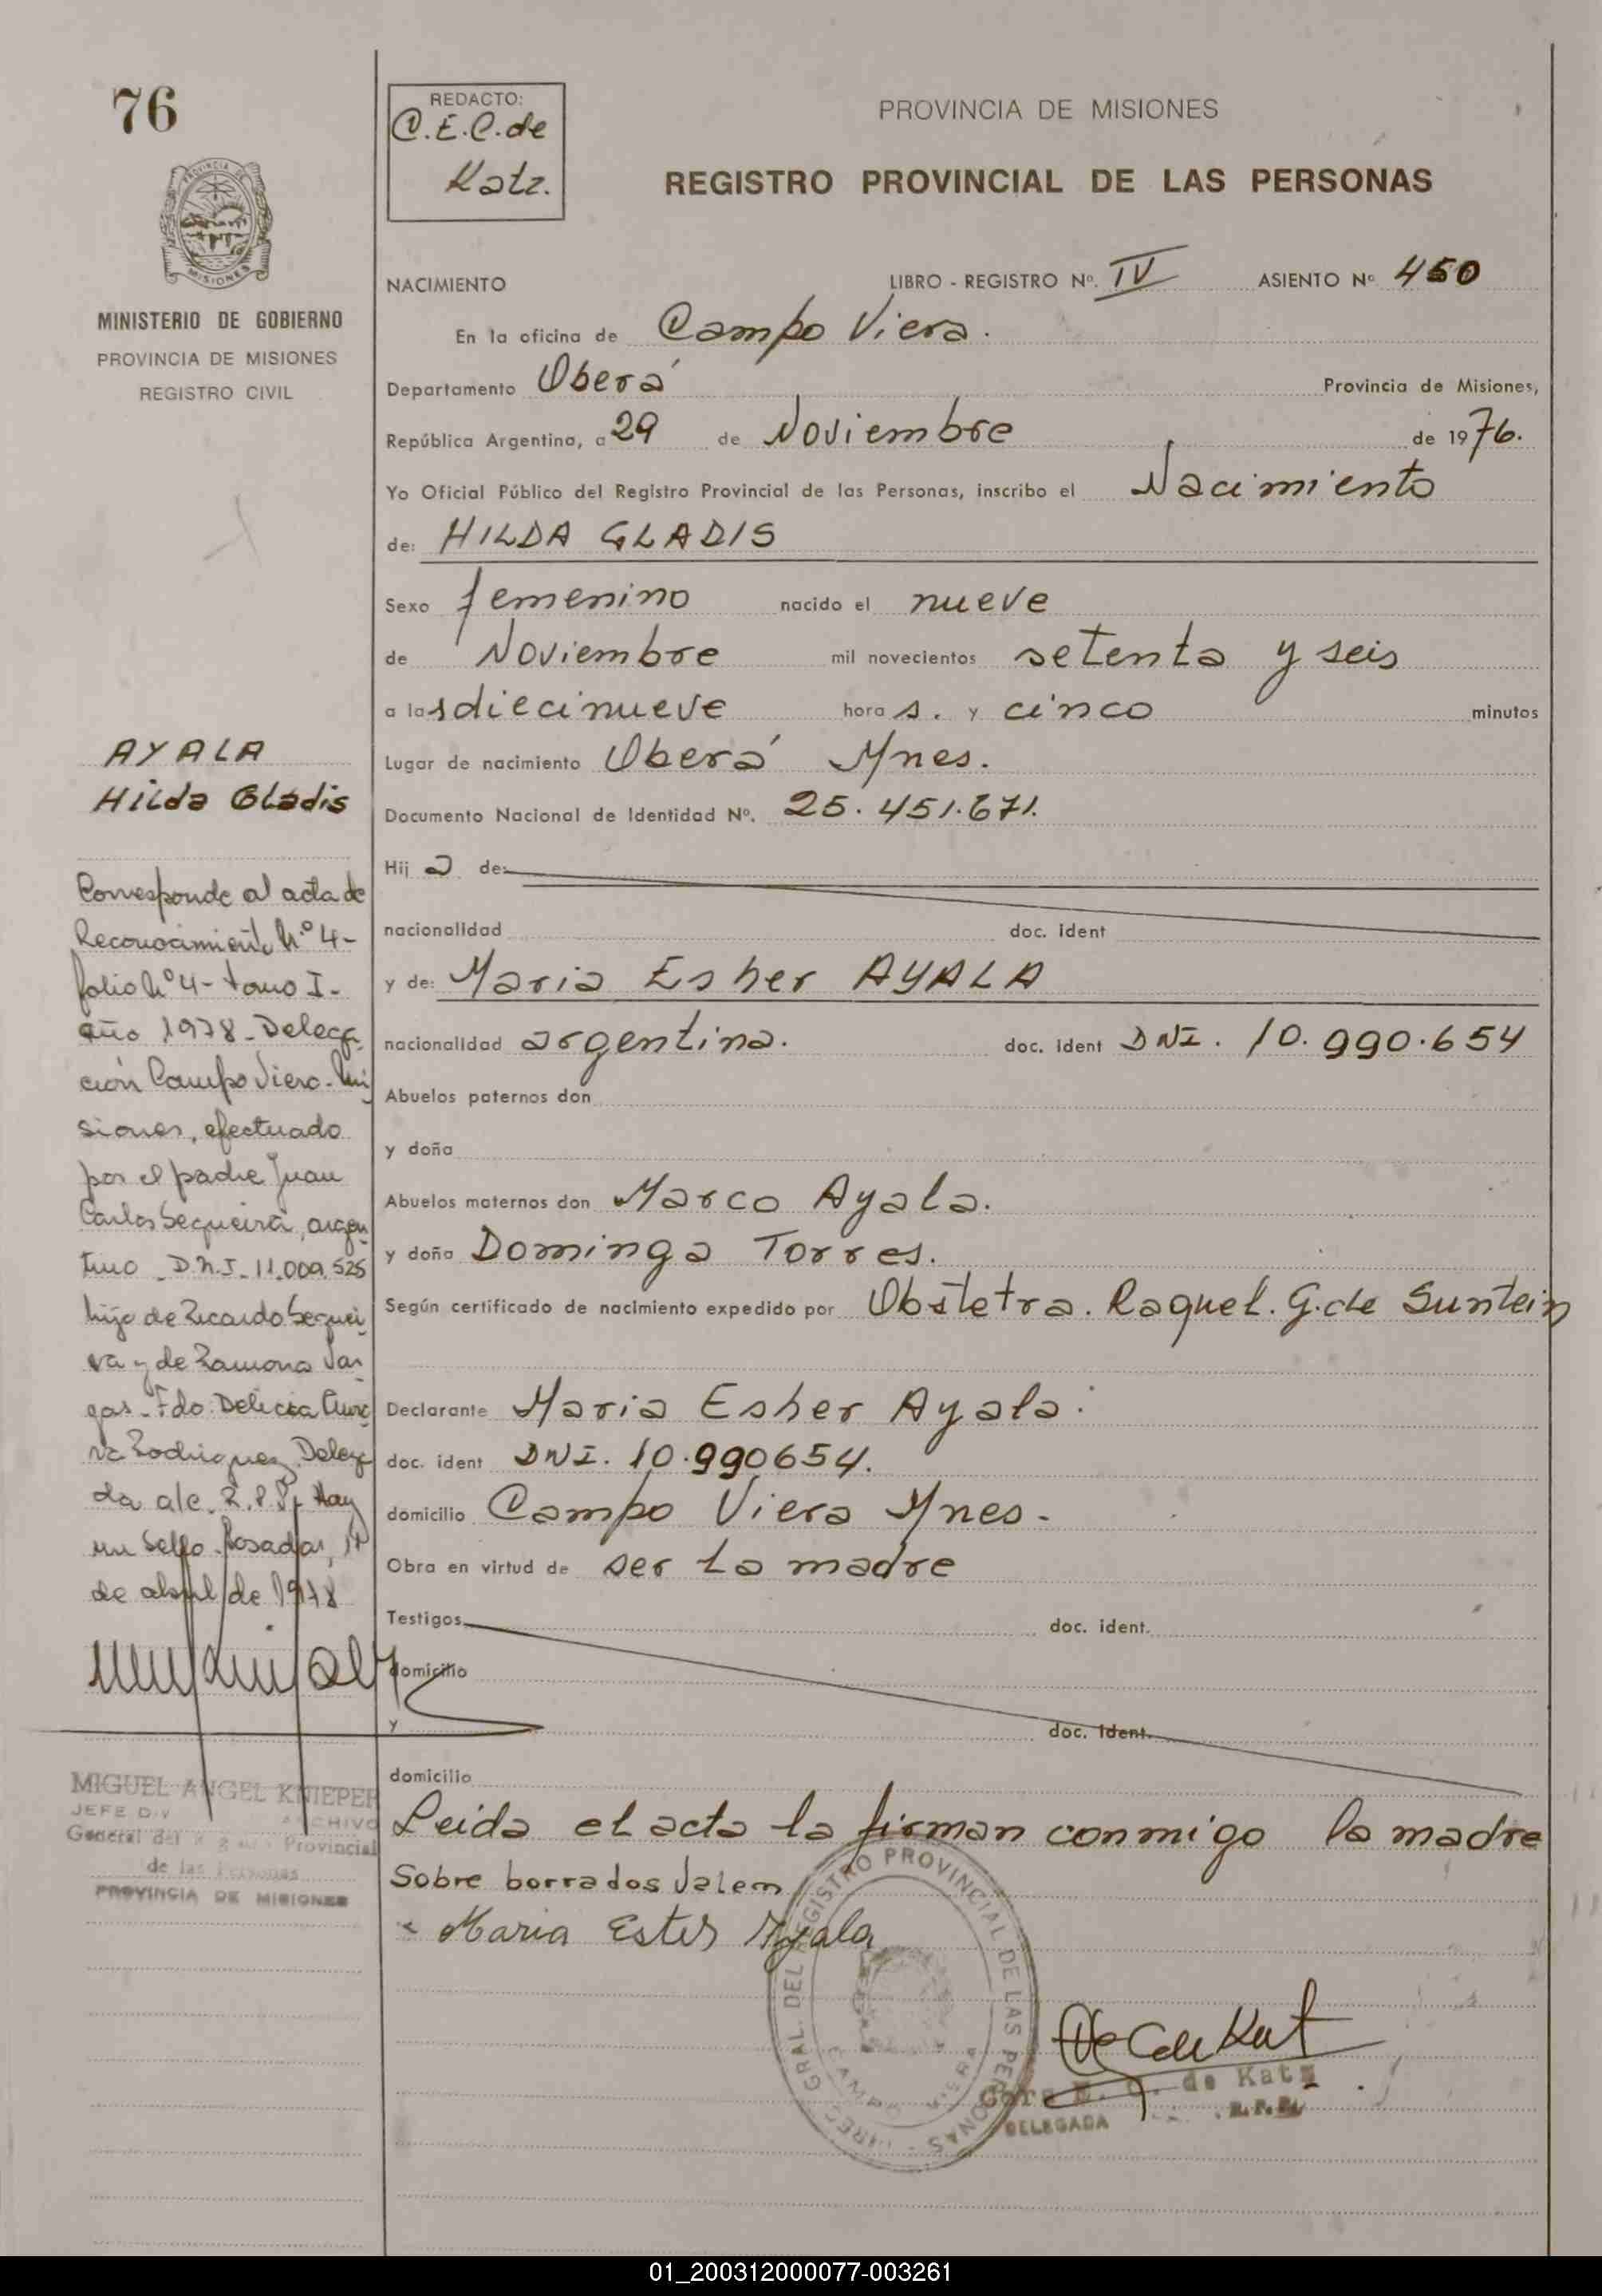 76
REDACTO:
C.E.C. de
Katz.
PROVINCIA DE MISIONES
REGISTRO PROVINCIAL DE LAS PERSONAS
MISIONES
MINISTERIO DE GOBIERNO
PROVINCIA DE MISIONES
REGISTRO CIVIL
NACIMIENTO LIBRO - REGISTRO Nº. IV ASIENTO Nº 450
En la oficina de Campo Viera.
Departamento Oberá Provincia de Misiones,
República Argentina, a 29 de Noviembre de 1976.
Yo Oficial Público del Registro Provincial de las Personas, inscribo el Nacimiento
de: HILDA GLADIS
Sexo femenino nacido el nueve
de Noviembre mil novecientos setenta y seis
a las diecinueve hora s. y cinco minutos
Lugar de nacimiento Oberá Mnes.
Documento Nacional de Identidad Nº. 25.451.671.
Hij a de:
nacionalidad doc. ident
y de: Maria Esher AYALA
nacionalidad argentina. doc. ident DNI. 10.990.654
Abuelos paternos don
y doña
Abuelos maternos don Marco Ayala.
y doña Dominga Torres.
Según certificado de nacimiento expedido por Obstetra. Raquel. G. de Suntein
Declarante Maria Esher Ayala.
doc. ident DNI. 10.990654.
domicilio Campo Viera Mnes.
Obra en virtud de ser la madre
Testigos doc. ident.
domicilio
y doc. ident.
domicilio
Leida el acta la firman conmigo la madre
Sobre borrados Valem
Maria Ester Ayala
AYALA
Hilda Gladis
Corresponde al acta de
Reconocimiento Nº 4-
folio Nº 4- tomo I-
año 1978- Delega
ción Campo Viera- Mi
siones, efectuado
por el padre Juan
Carlos Sequeira, argen
tino - D.N.I- 11.009.525
hijo de Ricardo Sequei
ra y de Ramona Var
gas- Fdo: Delicia
Rodriguez Delega
da a/c. R.P.P. Hay
un Sello. Posadas, 17
de abril de 1978
MIGUEL ANGEL KNIEPER
JEFE DIV ARCHIVO
General del Provincial
de las Personas
PROVINCIA DE MISIONES
DIREC. GRAL. DEL REGISTRO PROVINCIAL DE LAS PERSONAS
CAMPO VIERA
C. de Katz
E. C. de Katz
DELEGADA R.P.P.
01_200312000077-003261